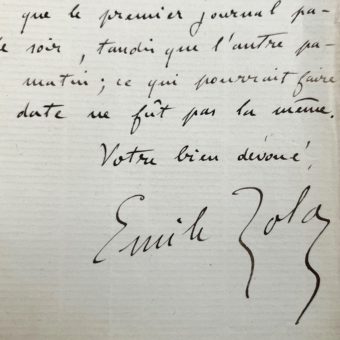 que le premier journal pa-
le soir, tandis que l'autre pa-
matin; ce qui pourrait faire
date ne fût pas la même.
Votre bien dévoué,
Emile Zola